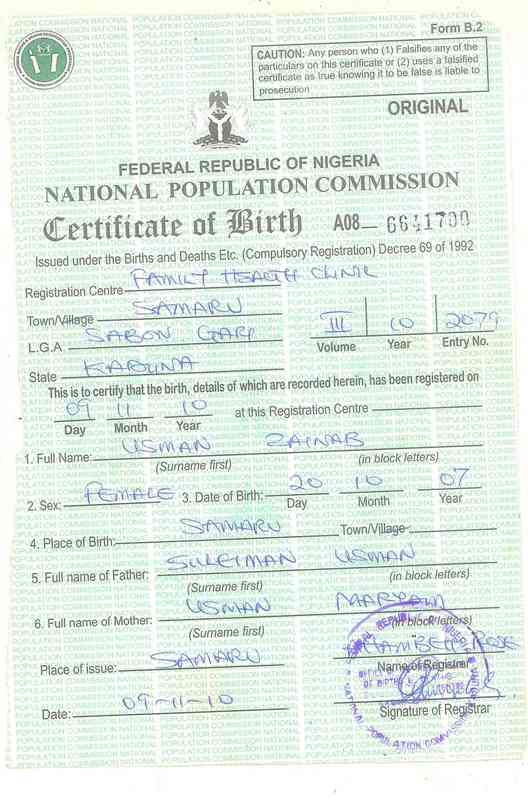 Form B.2
CAUTION: Any person who (1) Falsifies any of the
particulars on this certificate or (2) uses a falsified
certificate as true knowing it to be false is liable to
prosecution
ORIGINAL
FEDERAL REPUBLIC OF NIGERIA
NATIONAL POPULATION COMMISSION
Certificate of Birth A08— 6641700
Issued under the Births and Deaths Etc. (Compulsory Registration) Decree 69 of 1992
Registration Centre FAMILY HEALTH CLINIC
Town/Village SAMARU
L.G.A SABON GARI
III 10 2079
Volume Year Entry No.
State KADUNA
This is to certify that the birth, details of which are recorded herein, has been registered on
09 11 10 at this Registration Centre
Day Month Year
1. Full Name: USMAN ZAINAB
(Surname first) (in block letters)
2. Sex: FEMALE 3. Date of Birth: 20 10 07
Day Month Year
4. Place of Birth: SAMARU Town/Village
5. Full name of Father: SULEIMAN USMAN
(Surname first) (in block letters)
6. Full name of Mother: USMAN MARYAM
(Surname first) (in block letters)
Place of issue: SAMARU
Name of Registrar
Date: 09-11-10
Signature of Registrar